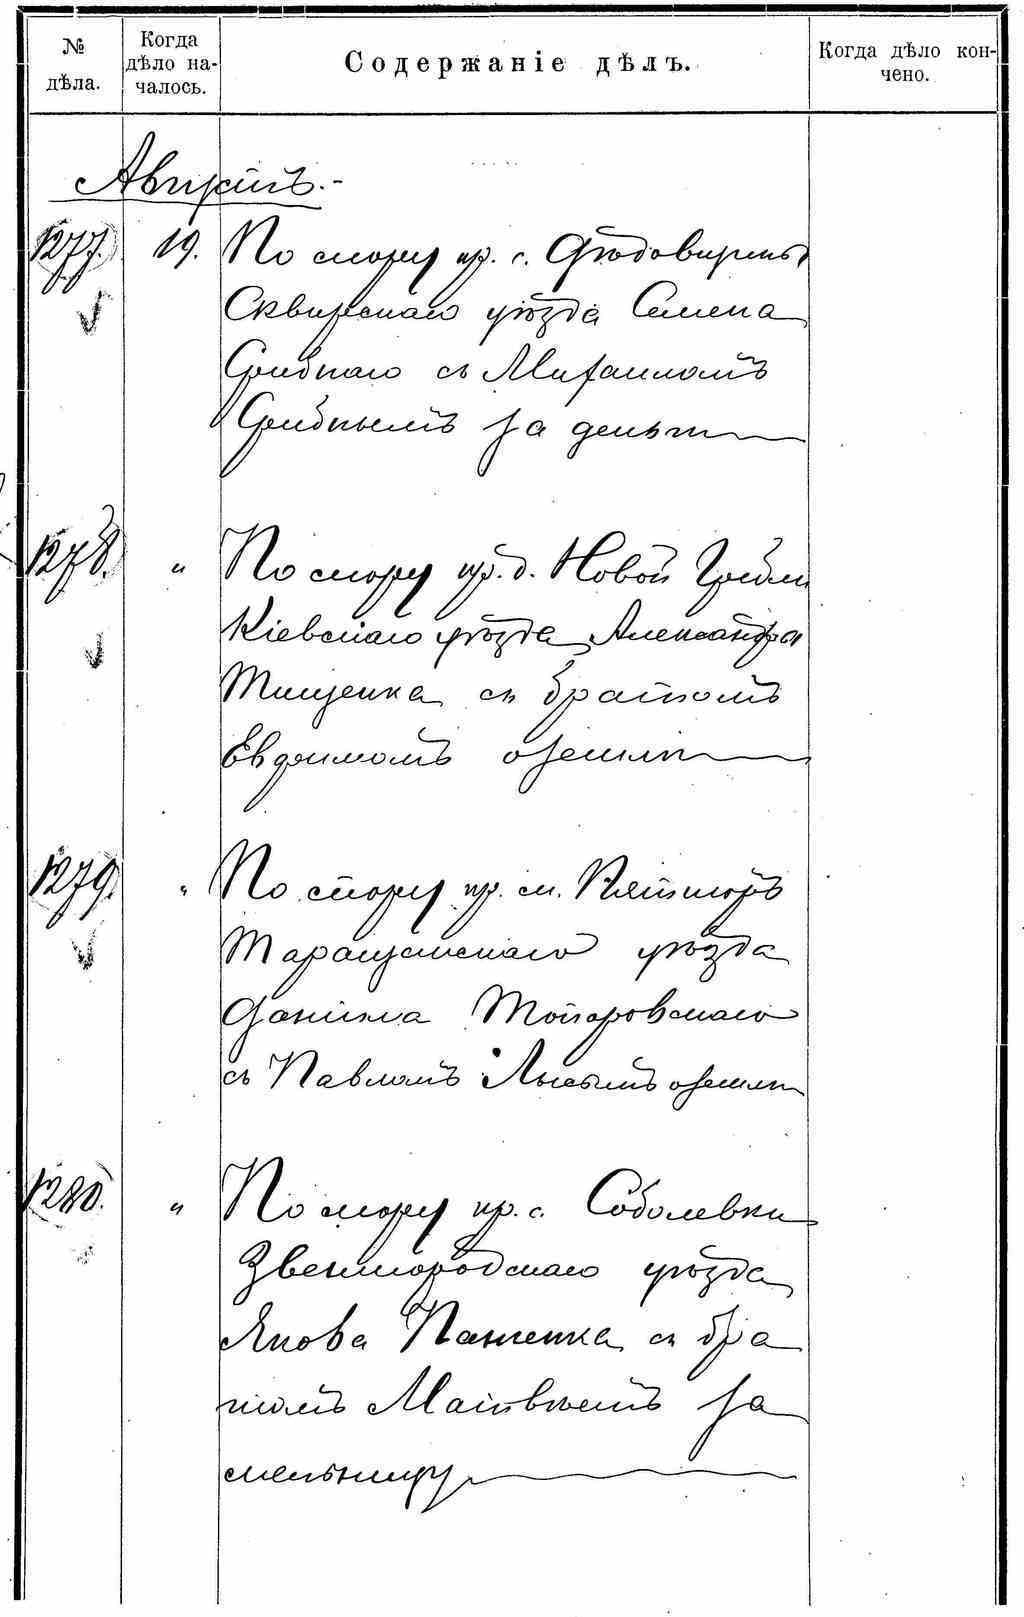 № дѣла.
Когда дѣло на-
чалось.
Содержаніе дѣлъ.
Когда дѣло кон-
чено.
Августъ.-
1277. 19. По спору кр. с.
Сквирскаго уѣзда Семена
Грибнаго съ Михаиломъ
Грибнымъ за деньги
1278. „ По спору кр. д. Новой Гребли
Кіевскаго уѣзда Александра
Тищенка съ братомъ
Евдокимомъ о землѣ
1279. „ По спору кр. м. Пятигоръ
Таращанскаго уѣзда
Даніила Топоровскаго
съ Павломъ Лысымъ о землѣ
1280. „ По спору кр. с. Соболевки
Звенигородскаго уѣзда
Якова Панченка съ бра
томъ Матвѣемъ за
мельницу